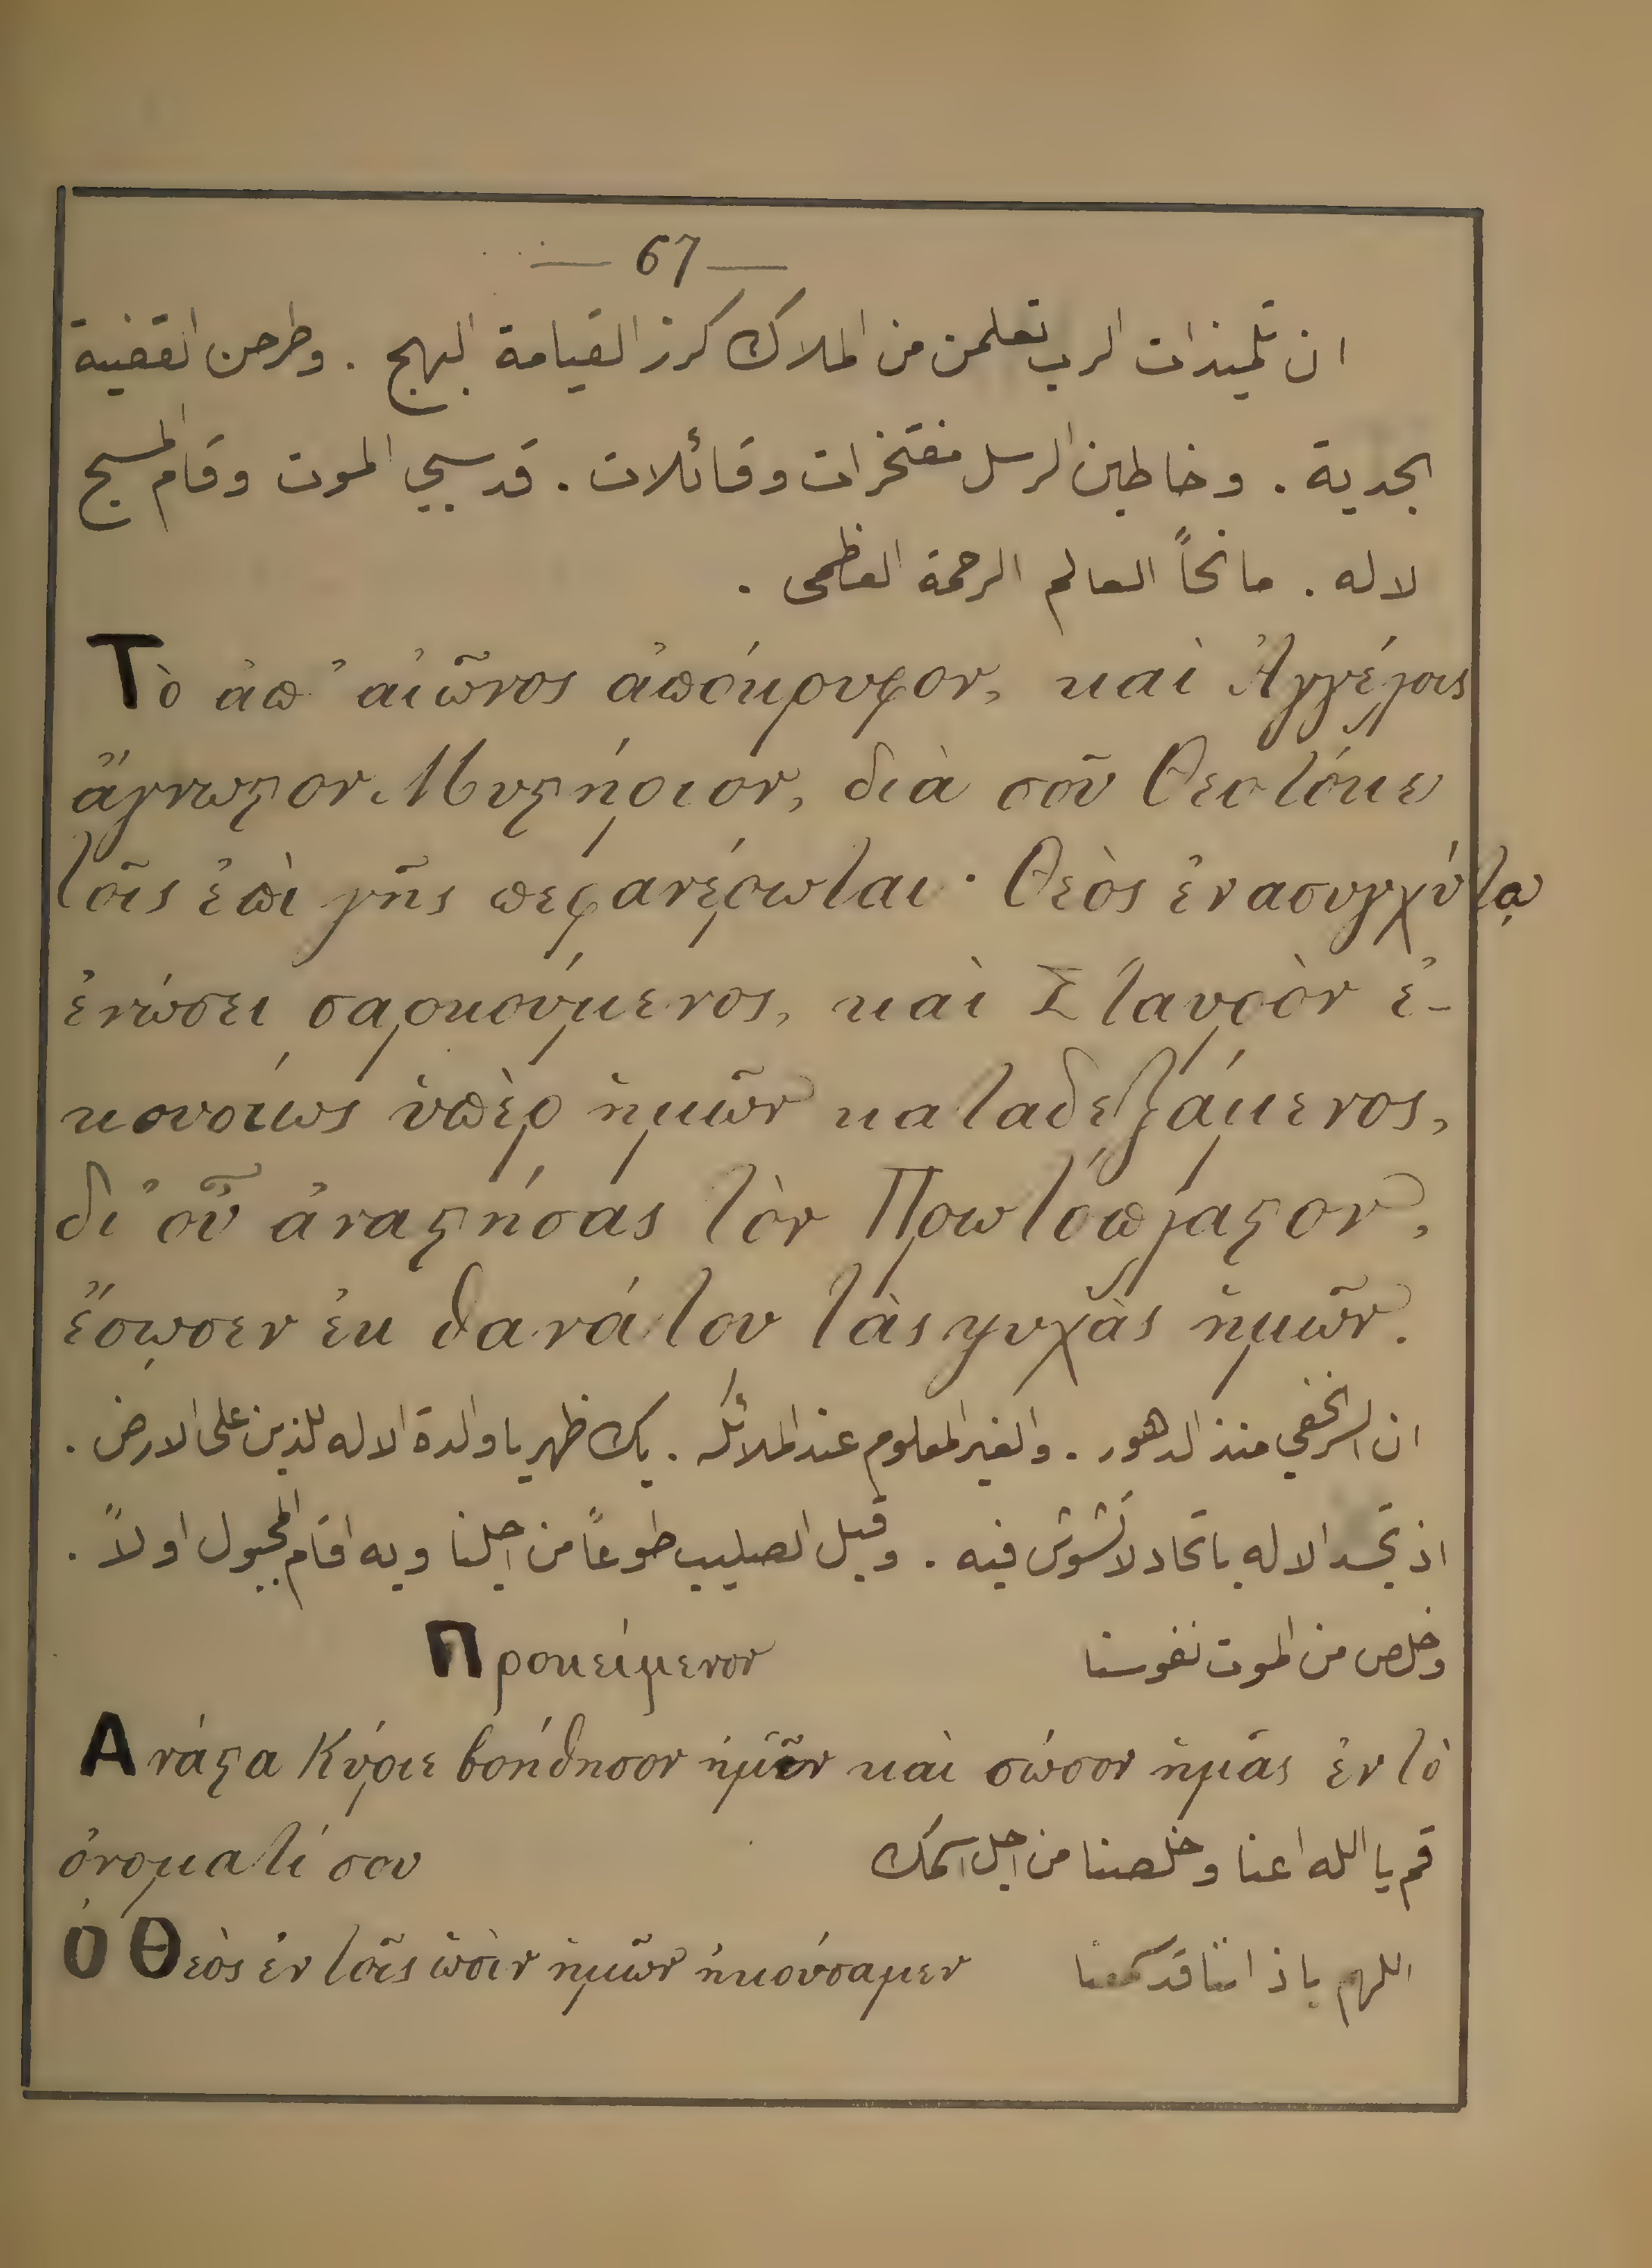 — 67 —
ان تلميذات الرب تعلمن من الملاك كرز القيامة البهج . وطرحن القضية
الجدية . وخاطبن الرسل مفتخرات وقائلات . قد سبي الموت وقام المسيح
لاله . مانحاً العالم الرحمة العظمى .
Τὸ ἀπ᾽ αἰῶνος ἀπόκρυφον, καὶ Ἀγγέλοις
ἄγνωστον Μυστήριον, διὰ σοῦ Θεοτόκε
τοῖς ἐπὶ γῆς πεφανέρωται· Θεὸς ἐν ἀσυγχύτῳ
ἑνώσει σαρκούμενος, καὶ Σταυρὸν ἑ-
κουσίως ὑπὲρ ἡμῶν καταδεξάμενος,
δι᾽ οὗ ἀναστήσας τὸν Πρωτόπλαστον,
ἔσῳσεν ἐκ θανάτου τὰς ψυχὰς ἡμῶν.
ان السر الخفي منذ الدهور . والغير المعلوم عند الملائكه . بك ظهر يا والدة الاله للذين على الارض .
اذ تجسد الاله باتحاد لا تشوش فيه . وقبل الصليب طوعاً من اجلنا وبه اقام المجبول اولاً .
وخلص من الموت نفوسنا Προκείμενον
Ἀνάστα Κύριε βοήθησον ἡμῶν καὶ σῶσον ἡμᾶς ἐν τὸ
ὀνοματί σου قم يا الله اعنا وخلصنا من اجل اسمك
Ὁ Θεὸς ἐν τοῖς ὠσὶν ἡμῶν ἠκούσαμεν اللهم باذاننا قد سمعنا